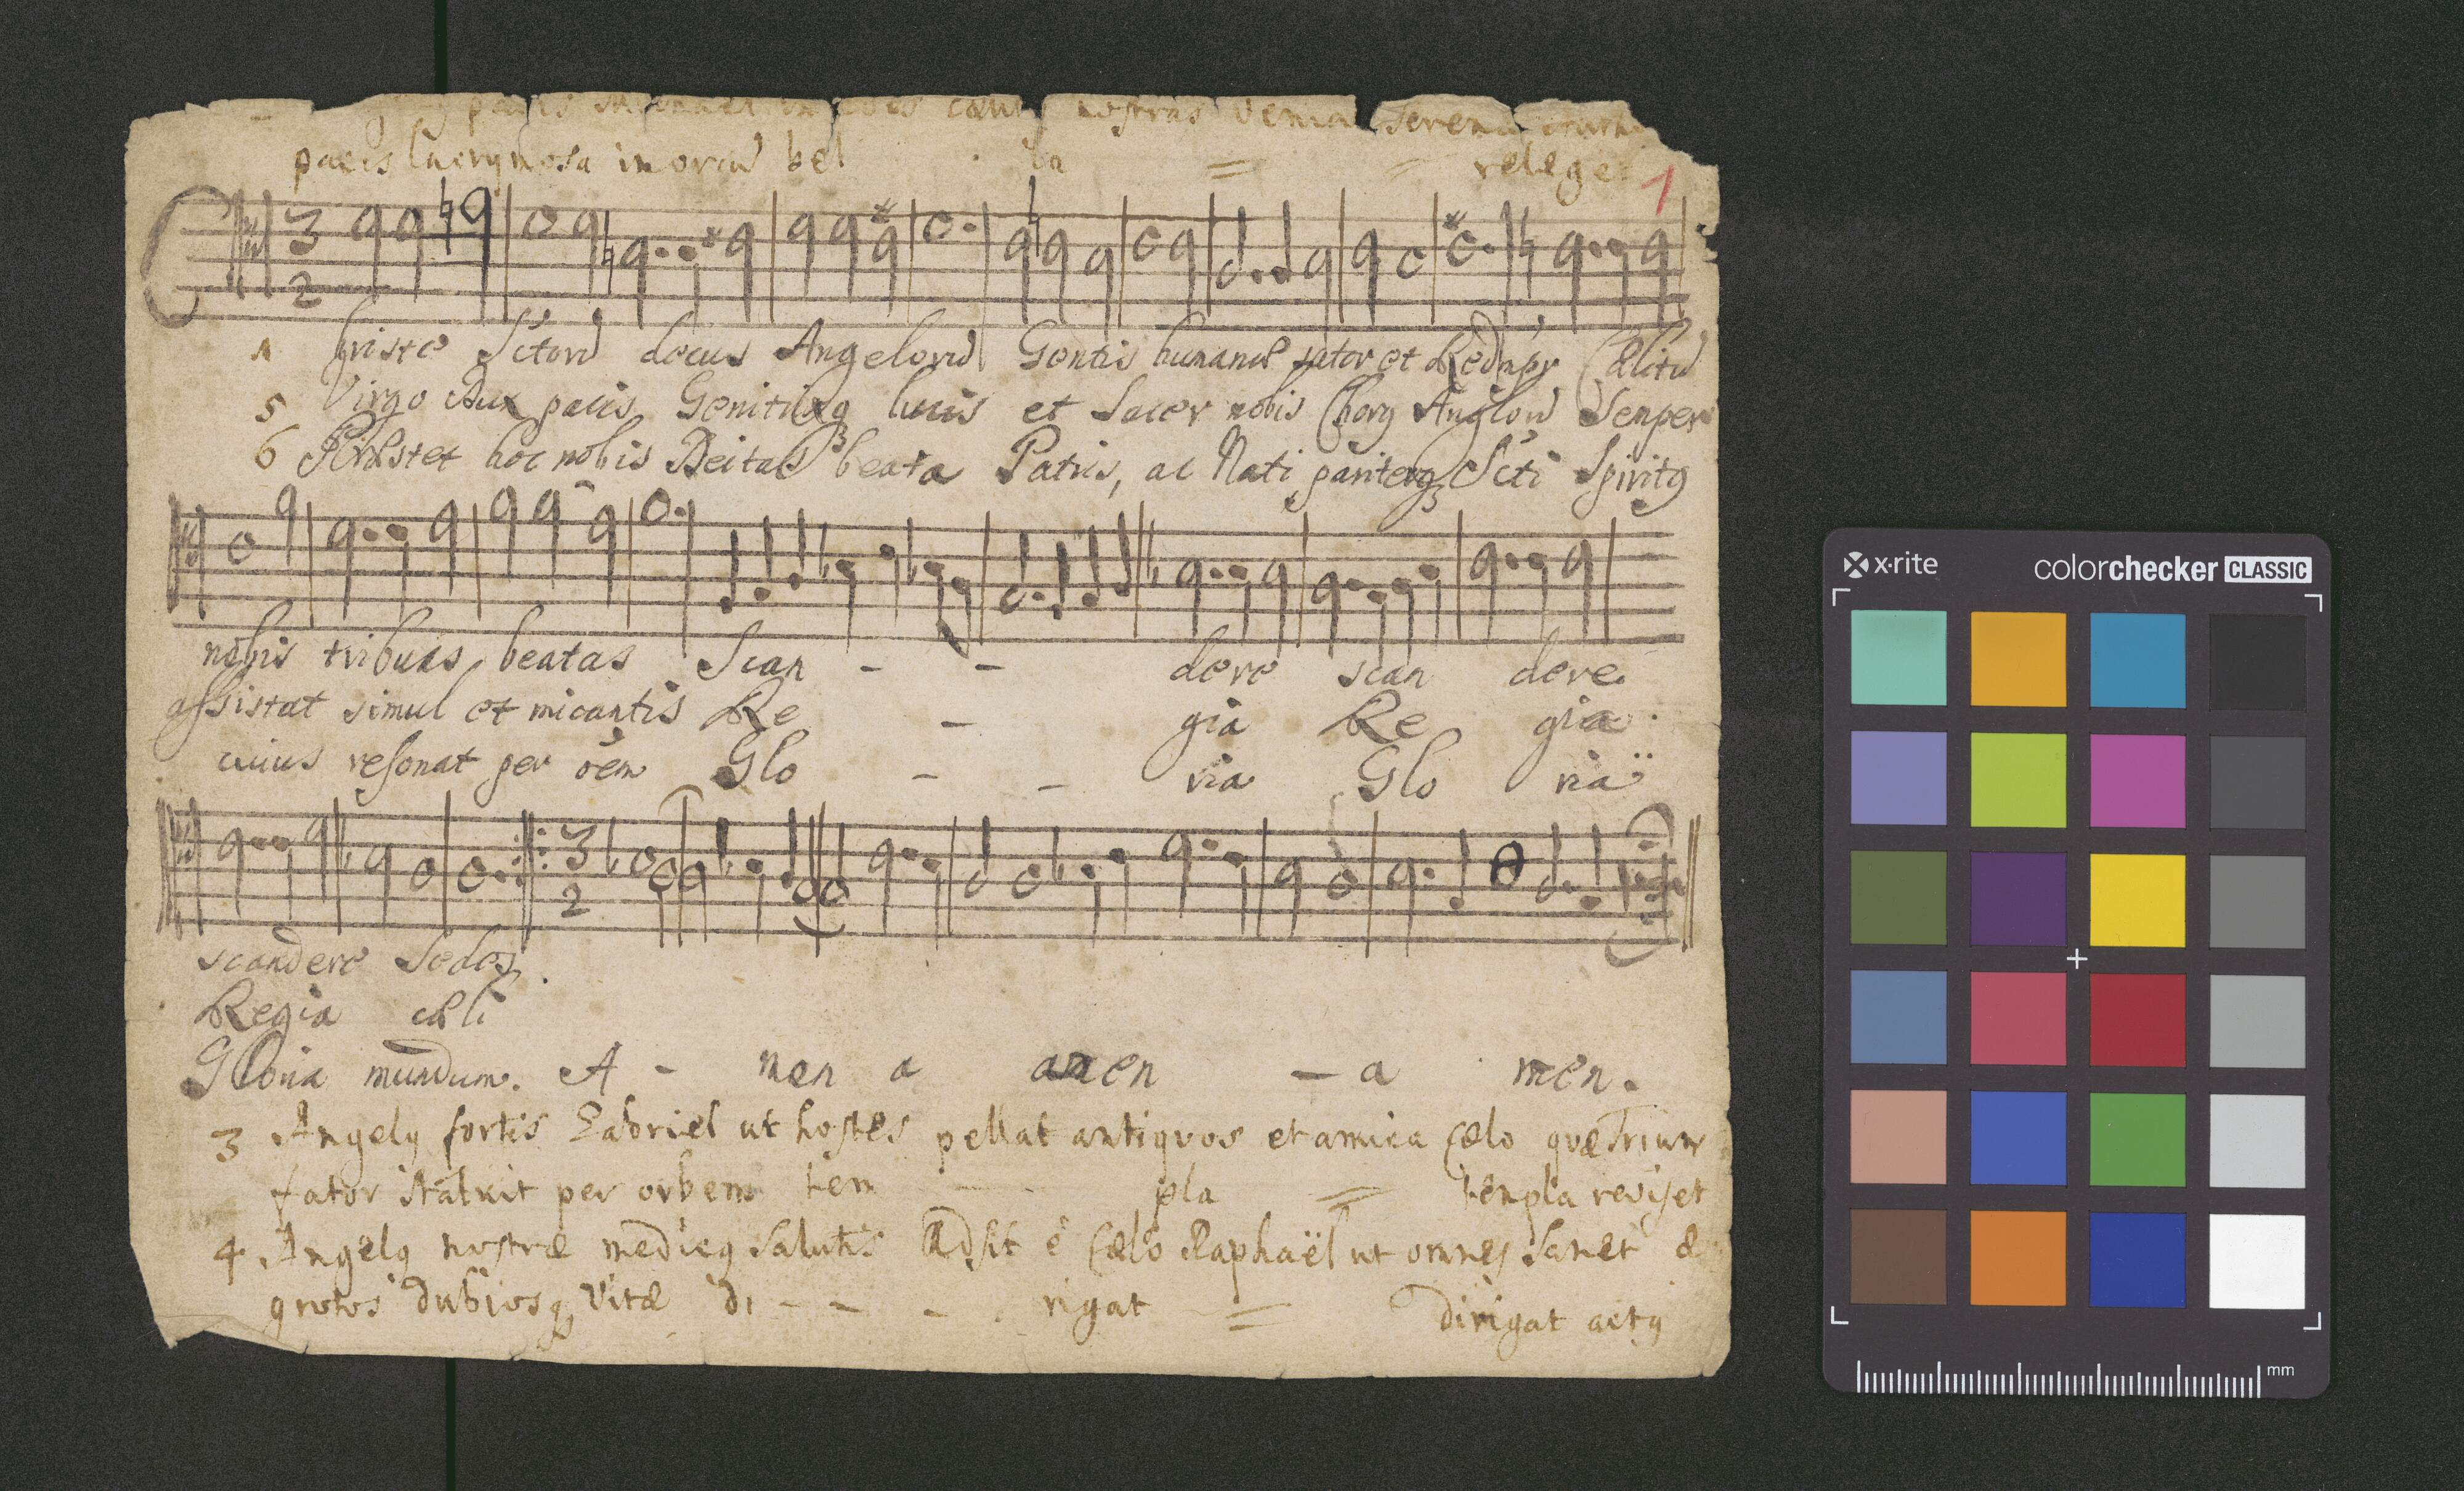 pacis cælitus nostras Venia Serenæ
pacis lacrymosa in orcũ bel - la = = releget
1
3
2
1 Christe Sctorũ decus Angelorũ Gentis humanæ sator et Redẽptr Cælitũ
5 Virgo dux pacis Genitrixq lucis et Sacer nobis Chorq Angelorũ Semper
6 Præstet hoc nobis Deitas beata Patris, ac Nati pariterq Scti Spiritq
nobis tribuas beatas Scan - - dere scan dere
assistat simul et micantis Re - gia Re gia
cuius resonat per oẽm Glo - - ria Glo ria
3
2
scandere Sedes.
Regia cæli
Gloria mundum. A - men a amen - a men.
3 Angelq fortis Gabriel ut hostes pellat antiquos et amica Cælo quæ Trium
fator statuit per orbem tem - pla = templa reviset
4 Angelq nostræ medicq Salutis Adsit è Cælo Raphaël ut omnes Sanet æ
grotos dubiosq Vitæ di - - - rigat = dirigat actq
x-rite
colorchecker CLASSIC
mm